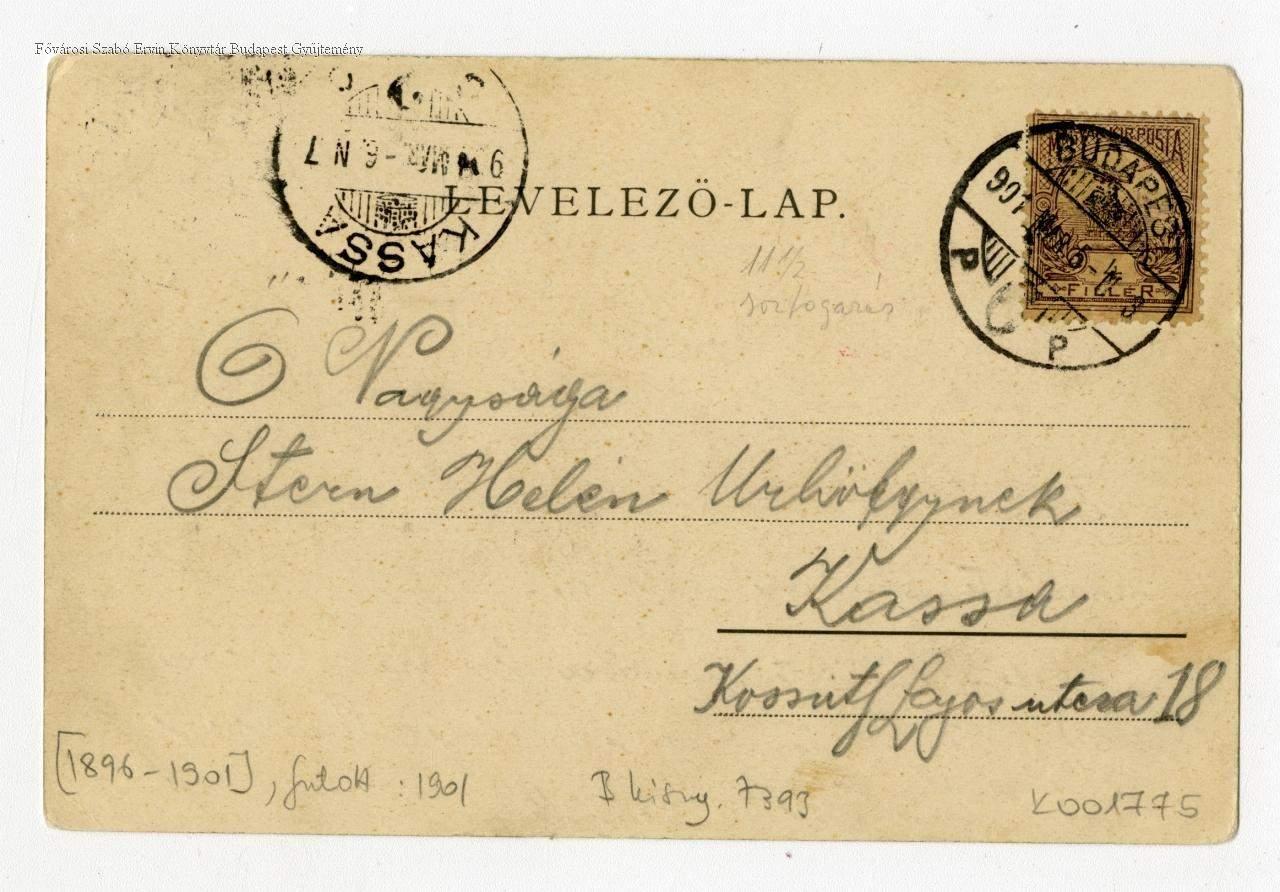 Fővárosi Szabó Ervin Könyvtár Budapest Gyűjtemény
9 MÁR.-6. N 7
KASSA
LEVELEZŐ-LAP.
MAGYAR KIR. POSTA
BUDAPEST
901 MÁR 5
FILLÉR
P P
11 1/2
Ő Nagysága
Stern Helén Urhölgynek
Kassa
Kossuth Lajos utcza 18
[1896-1901], futott: 1901
B kisny. 7393
K001775